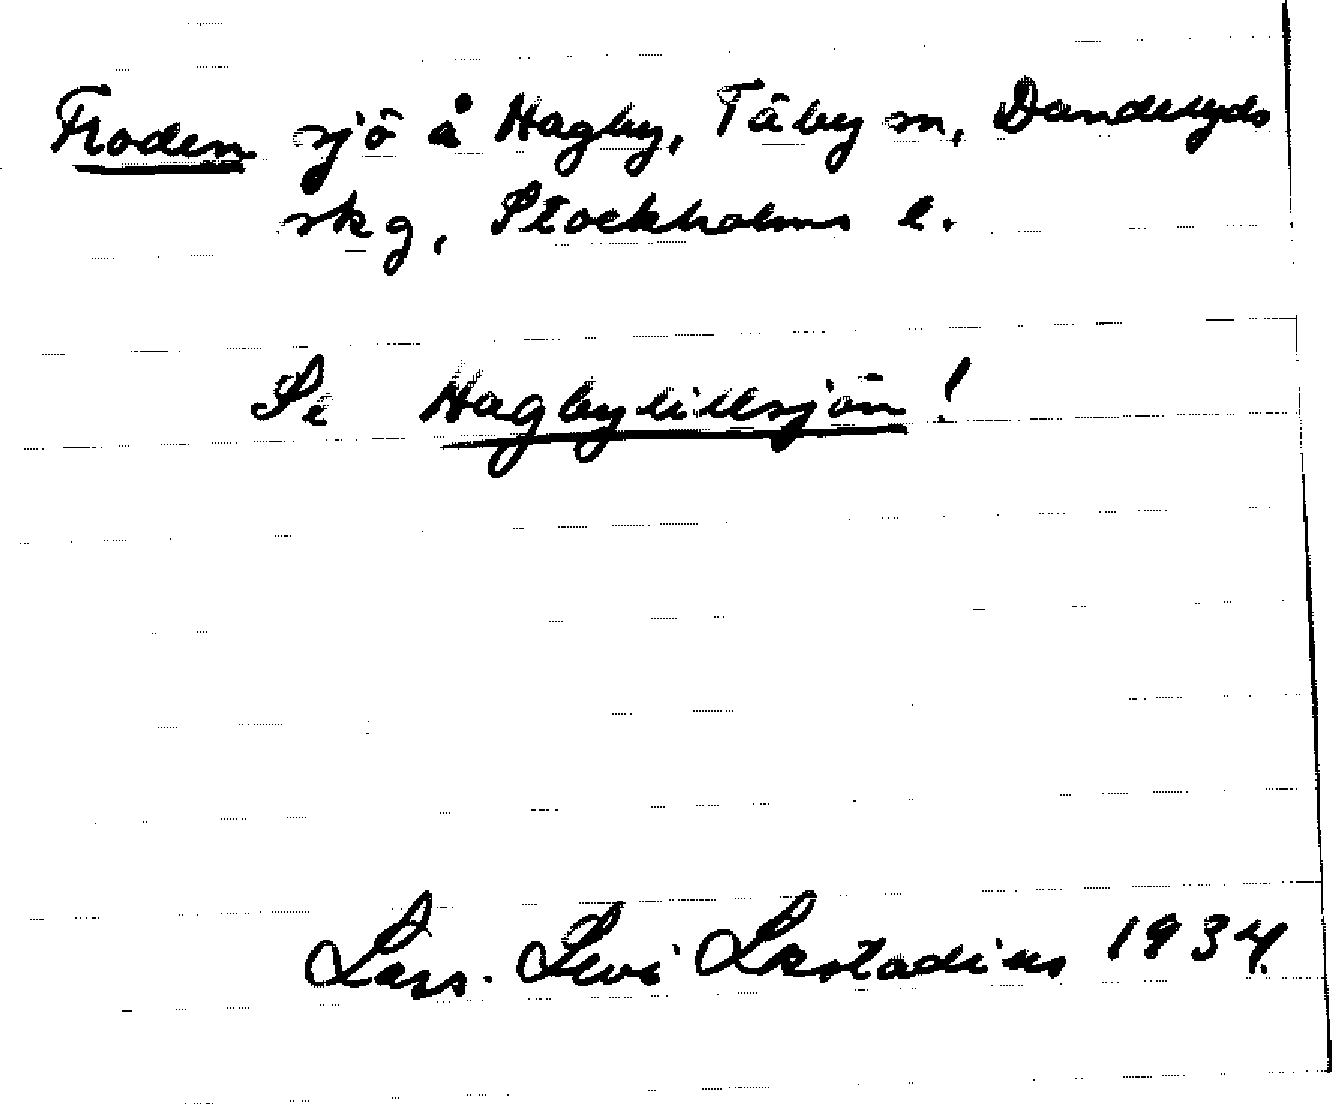 Froden sjö å Hagby, Täby sn, Danderyds
skg, Stockholms l.
Se Hagbylillsjön!
Lars-Levi Læstadius 1934.